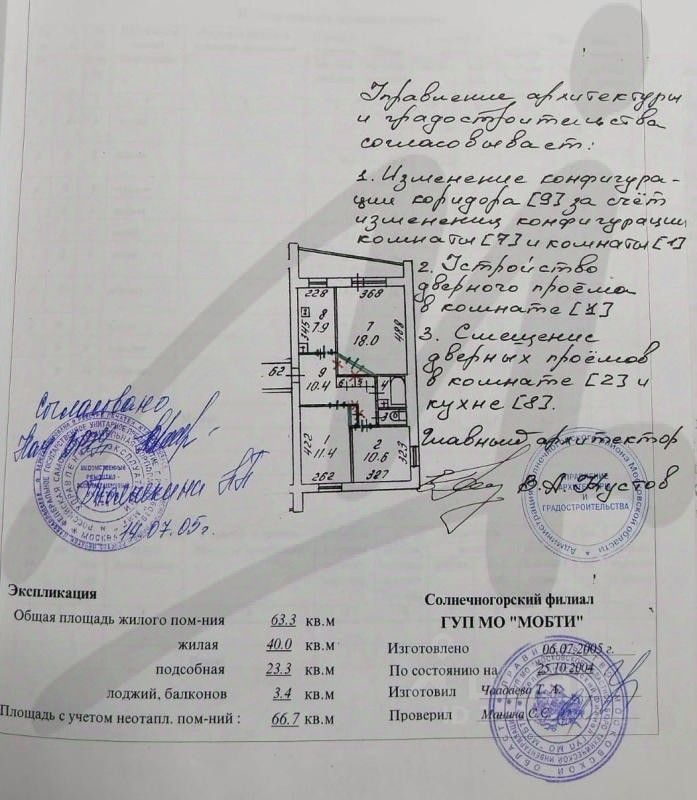 Управление архитектуры
и градостроительства
согласовывает:
1. Изменение конфигура-
ции коридора [9] за счёт
изменения конфигурации
комнаты [7] и комнаты [1]
2. Устройство
дверного проёма
в комнате [1]
3. Смещение
дверных проёмов
в комнате [2] и
кухне [8].
Главный архитектор
В.А.
УПРАВЛЕНИЕ
АРХИТЕКТУРЫ
И
ГРАДОСТРОИТЕЛЬСТВА
228 368
345 8 7.9 7 18.0 488
.62 9 10.4 6 5 4
3
422 1 11.4 2 10.6 323
262 327
Согласовано
14.07.05г.
Экспликация
Общая площадь жилого пом-ния 63.3 кв.м
жилая 40.0 кв.м
подсобная 23.3 кв.м
лоджий, балконов 3.4 кв.м
Площадь с учетом неотапл. пом-ний : 66.7 кв.м
Солнечногорский филиал
ГУП МО "МОБТИ"
Изготовлено 06.07.2005 г.
По состоянию на 25.10.2004
Изготовил Чаадаева Т. А.
Проверил Манина С.С.